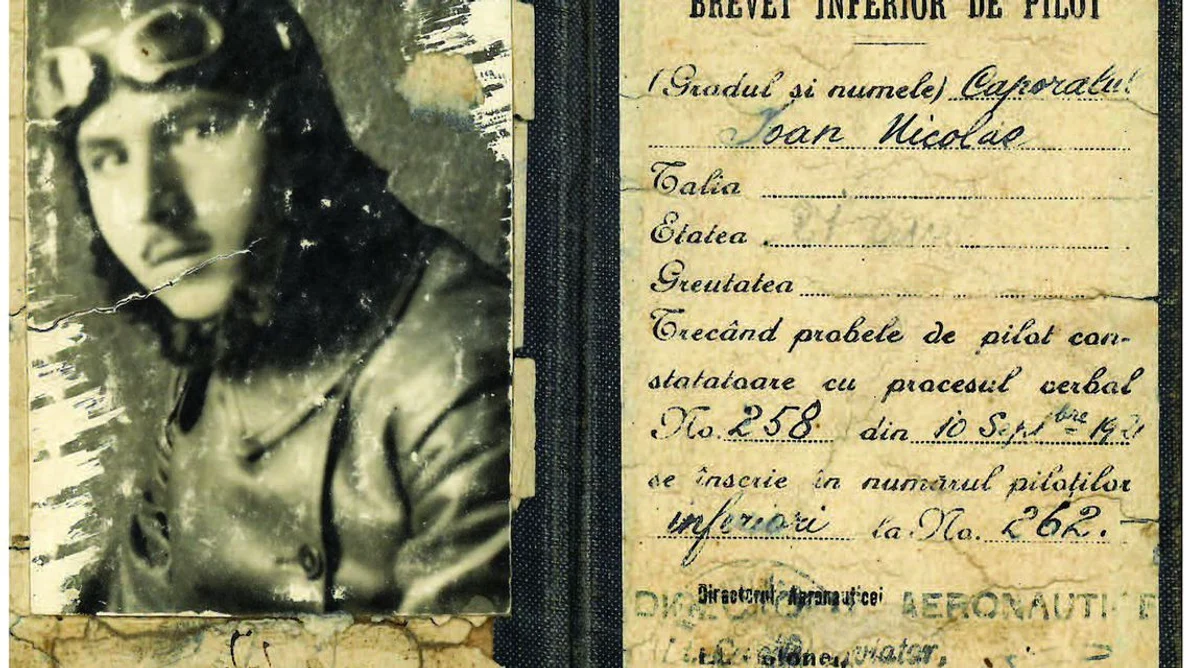 BREVET INFERIOR DE PILOT
(Gradul și numele) Caporalul
Ioan Nicolae
Talia
Etatea 21
Greutatea
Trecând probele de pilot con-
statatoare cu procesul verbal
No. 258 din 10 Septbre 192
se înscrie în numărul piloților
inferiori la No. 262.
Directorul Aeronauticei
AERONAUTI